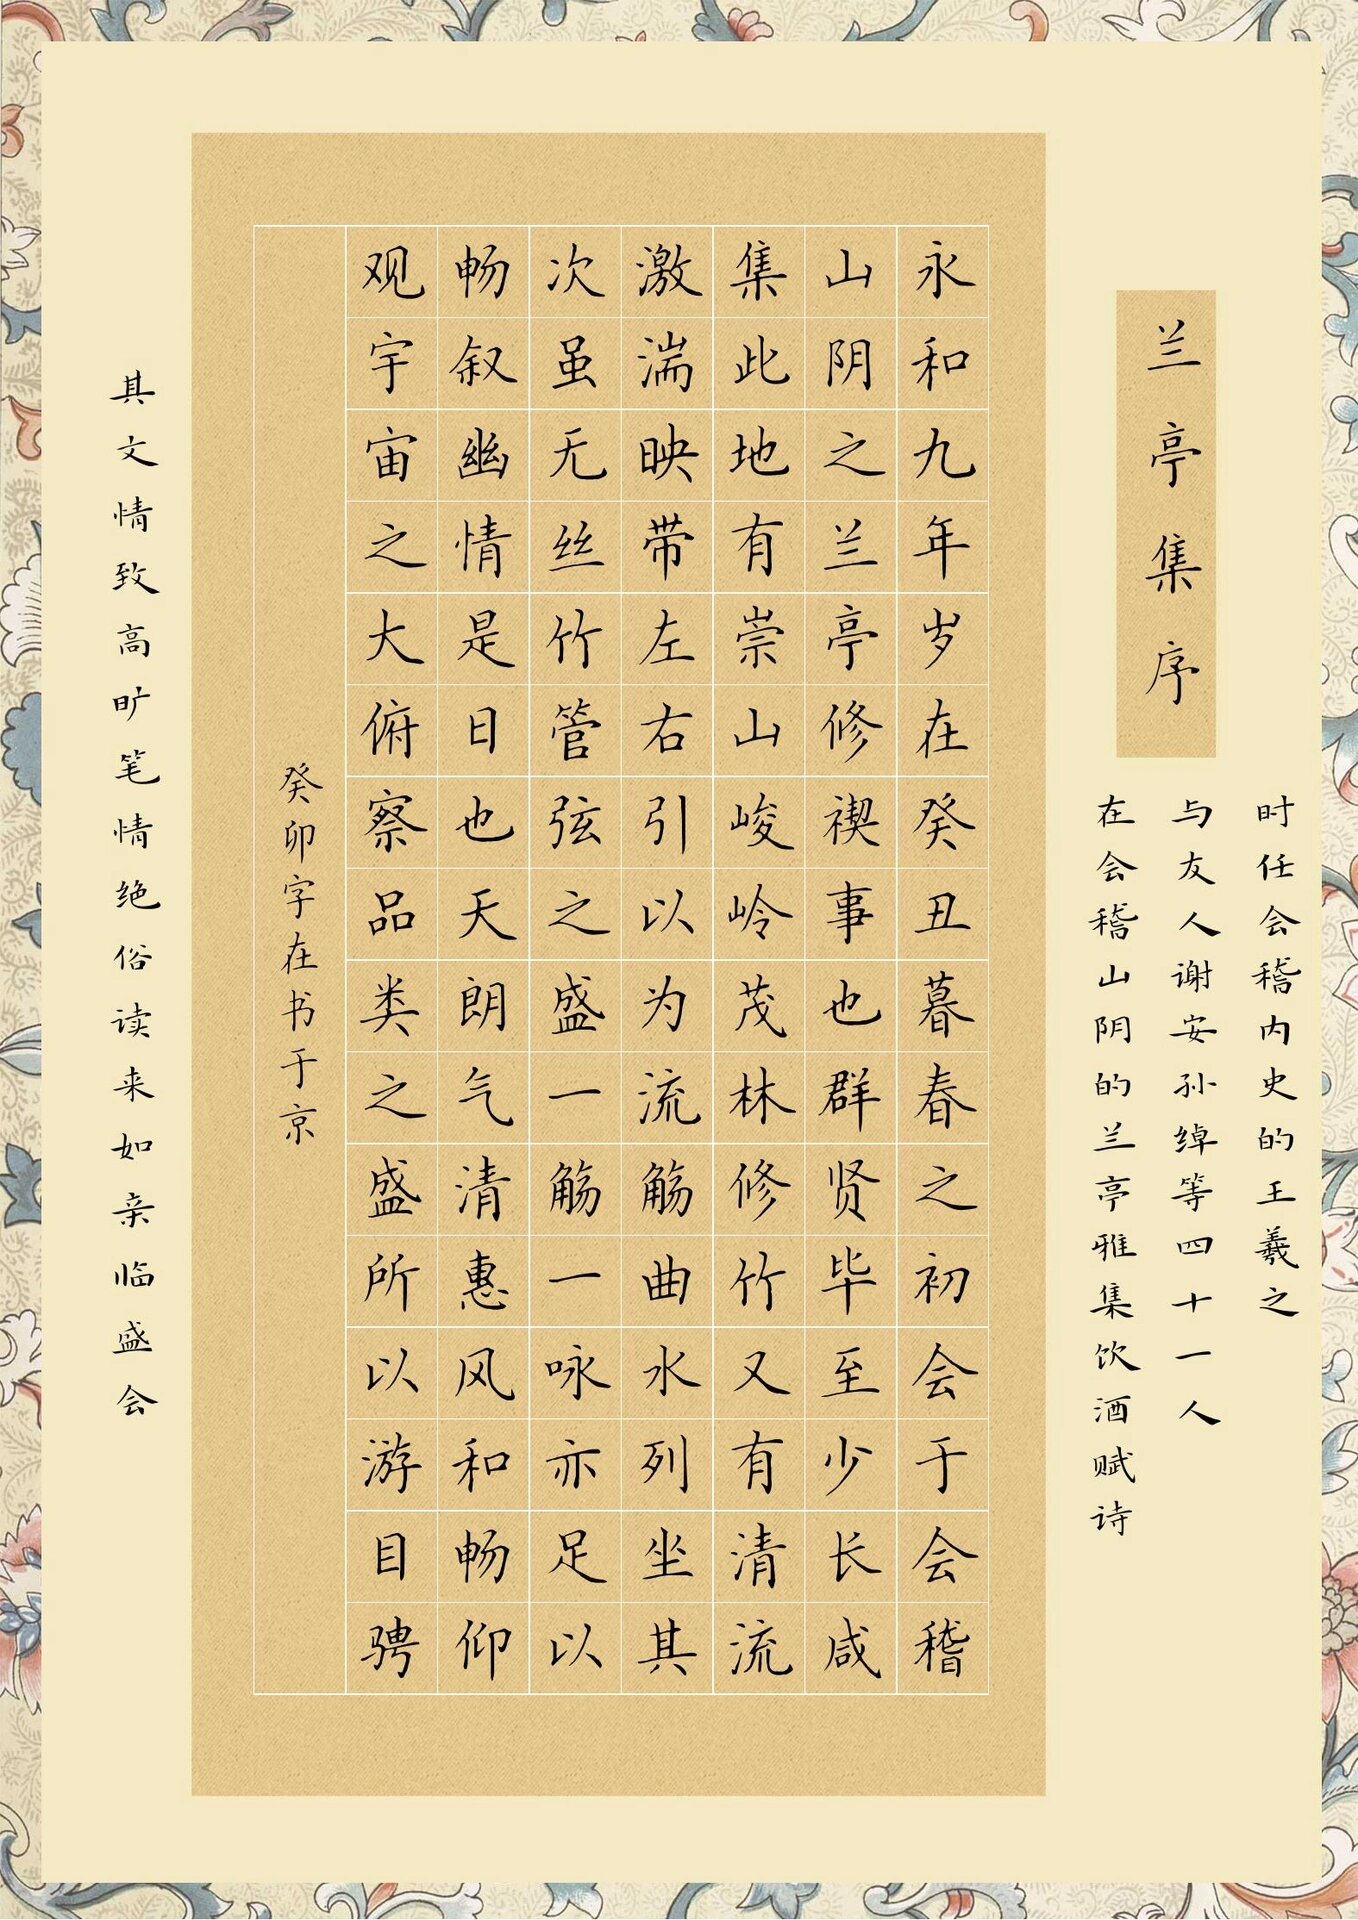 兰亭集序
时任会稽内史的王羲之
与友人谢安孙绰等四十一人
在会稽山阴的兰亭雅集饮酒赋诗
永和九年岁在癸丑暮春之初会于会稽
山阴之兰亭修禊事也群贤毕至少长咸
集此地有崇山峻岭茂林修竹又有清流
激湍映带左右引以为流觞曲水列坐其
次虽无丝竹管弦之盛一觞一咏亦足以
畅叙幽情是日也天朗气清惠风和畅仰
观宇宙之大俯察品类之盛所以游目骋
癸卯字在书于京
其文情致高旷笔情绝俗读来如亲临盛会